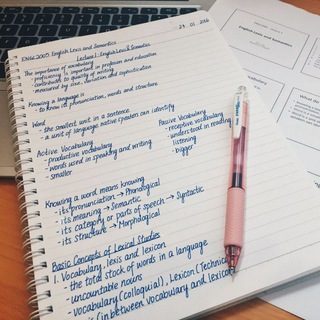 24 . 01 . 2016
ENGL 2005 English Lexis and Semantics
Lecture 1 : English Lexis & Semantics
The importance of vocabulary
- proficiency is important in profession and education
- contributes to quality of writing
- measured by size, variation and sophistication
Knowing a language is
- to know its pronunciation, words and structure
Word
- the smallest unit in a sentence
- a unit of language native speakers can identify
Active Vocabulary
- productive vocabulary
- words used in speaking and writing
- smaller
Passive Vocabulary
- receptive vocabulary
- understood in reading
listening
- bigger
Knowing a word means knowing
- its pronunciation → Phonological
- its meaning → Semantic
- its category or parts of speech → Syntactic
- its structure → Morphological
Basic Concepts of Lexical Studies
1. Vocabulary, lexis and lexicon
- the total stock of words in a language
- uncountable nouns
- vocabulary (colloquial), Lexicon (Technic
(in between vocabulary and lexicon
English Lexis and Semantics